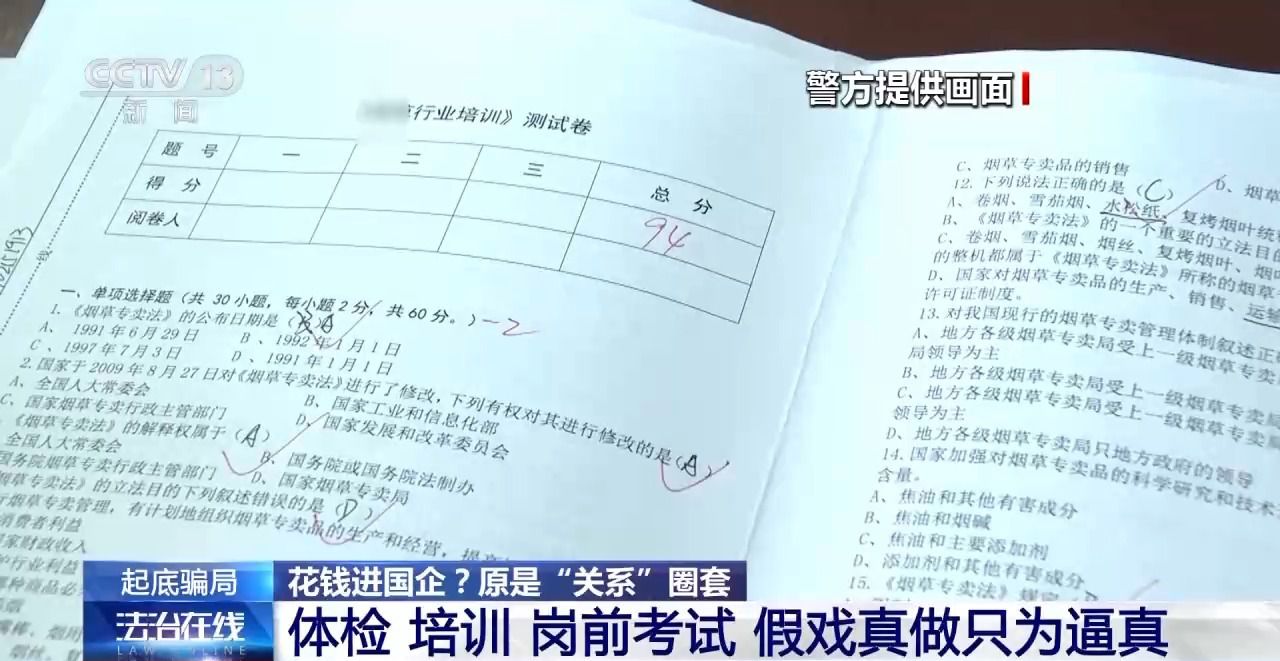 CCTV 13
新闻
警方提供画面
行业培训》测试卷
题号 一 二 三 总分
得分 94
阅卷人
一、单项选择题（共 30 小题，每小题 2 分，共 60 分。）-2
1.《烟草专卖法》的公布日期是（A）
A、1991 年 6 月 29 日 B、1992 年 1 月 1 日
C、1997 年 7 月 3 日 D、1991 年 1 月 1 日
2.国家于 2009 年 8 月 27 日对《烟草专卖法》进行了修改，下列有权对其进行修改的是（A）
A、全国人大常委会 B、国家工业和信息化部
C、国家烟草专卖行政主管部门 D、国家发展和改革委员会
《烟草专卖法》的解释权属于（A）
全国人大常委会 B、国务院或国务院法制办
国务院烟草专卖行政主管部门 D、国家烟草专卖局
烟草专卖法》的立法目的下列叙述错误的是（D）
烟草专卖管理，有计划地组织烟草专卖品的生产和经营，
消费者利益
家财政收入
行业利益
C、烟草专卖品的销售 D、烟草
12.下列说法正确的是（C）
A、卷烟、雪茄烟、水松纸、复烤烟叶统
B、《烟草专卖法》的一个重要的立法目的
C、卷烟、雪茄烟、烟丝、复烤烟叶、烟
的整机都属于《烟草专卖法》所称的烟草
D、国家对烟草专卖品的生产、销售、运输
许可证制度。
13.对我国现行的烟草专卖管理体制叙述正确
A、地方各级烟草专卖局受上一级烟草专卖
局领导为主
B、地方各级烟草专卖局受上一级烟草专卖局
C、地方各级烟草专卖局受上一级烟草专卖局
领导为主
D、地方各级烟草专卖局只地方政府的领导
14.国家加强对烟草专卖品的科学研究和技术
含量。
A、焦油和其他有害成分
B、焦油和烟碱
C、焦油和主要添加剂
D、添加剂和其他有害成分
15.《烟草专卖法》规定
起底骗局
花钱进国企？原是“关系”圈套
法治在线
LAW ONLINE
体检 培训 岗前考试 假戏真做只为逼真